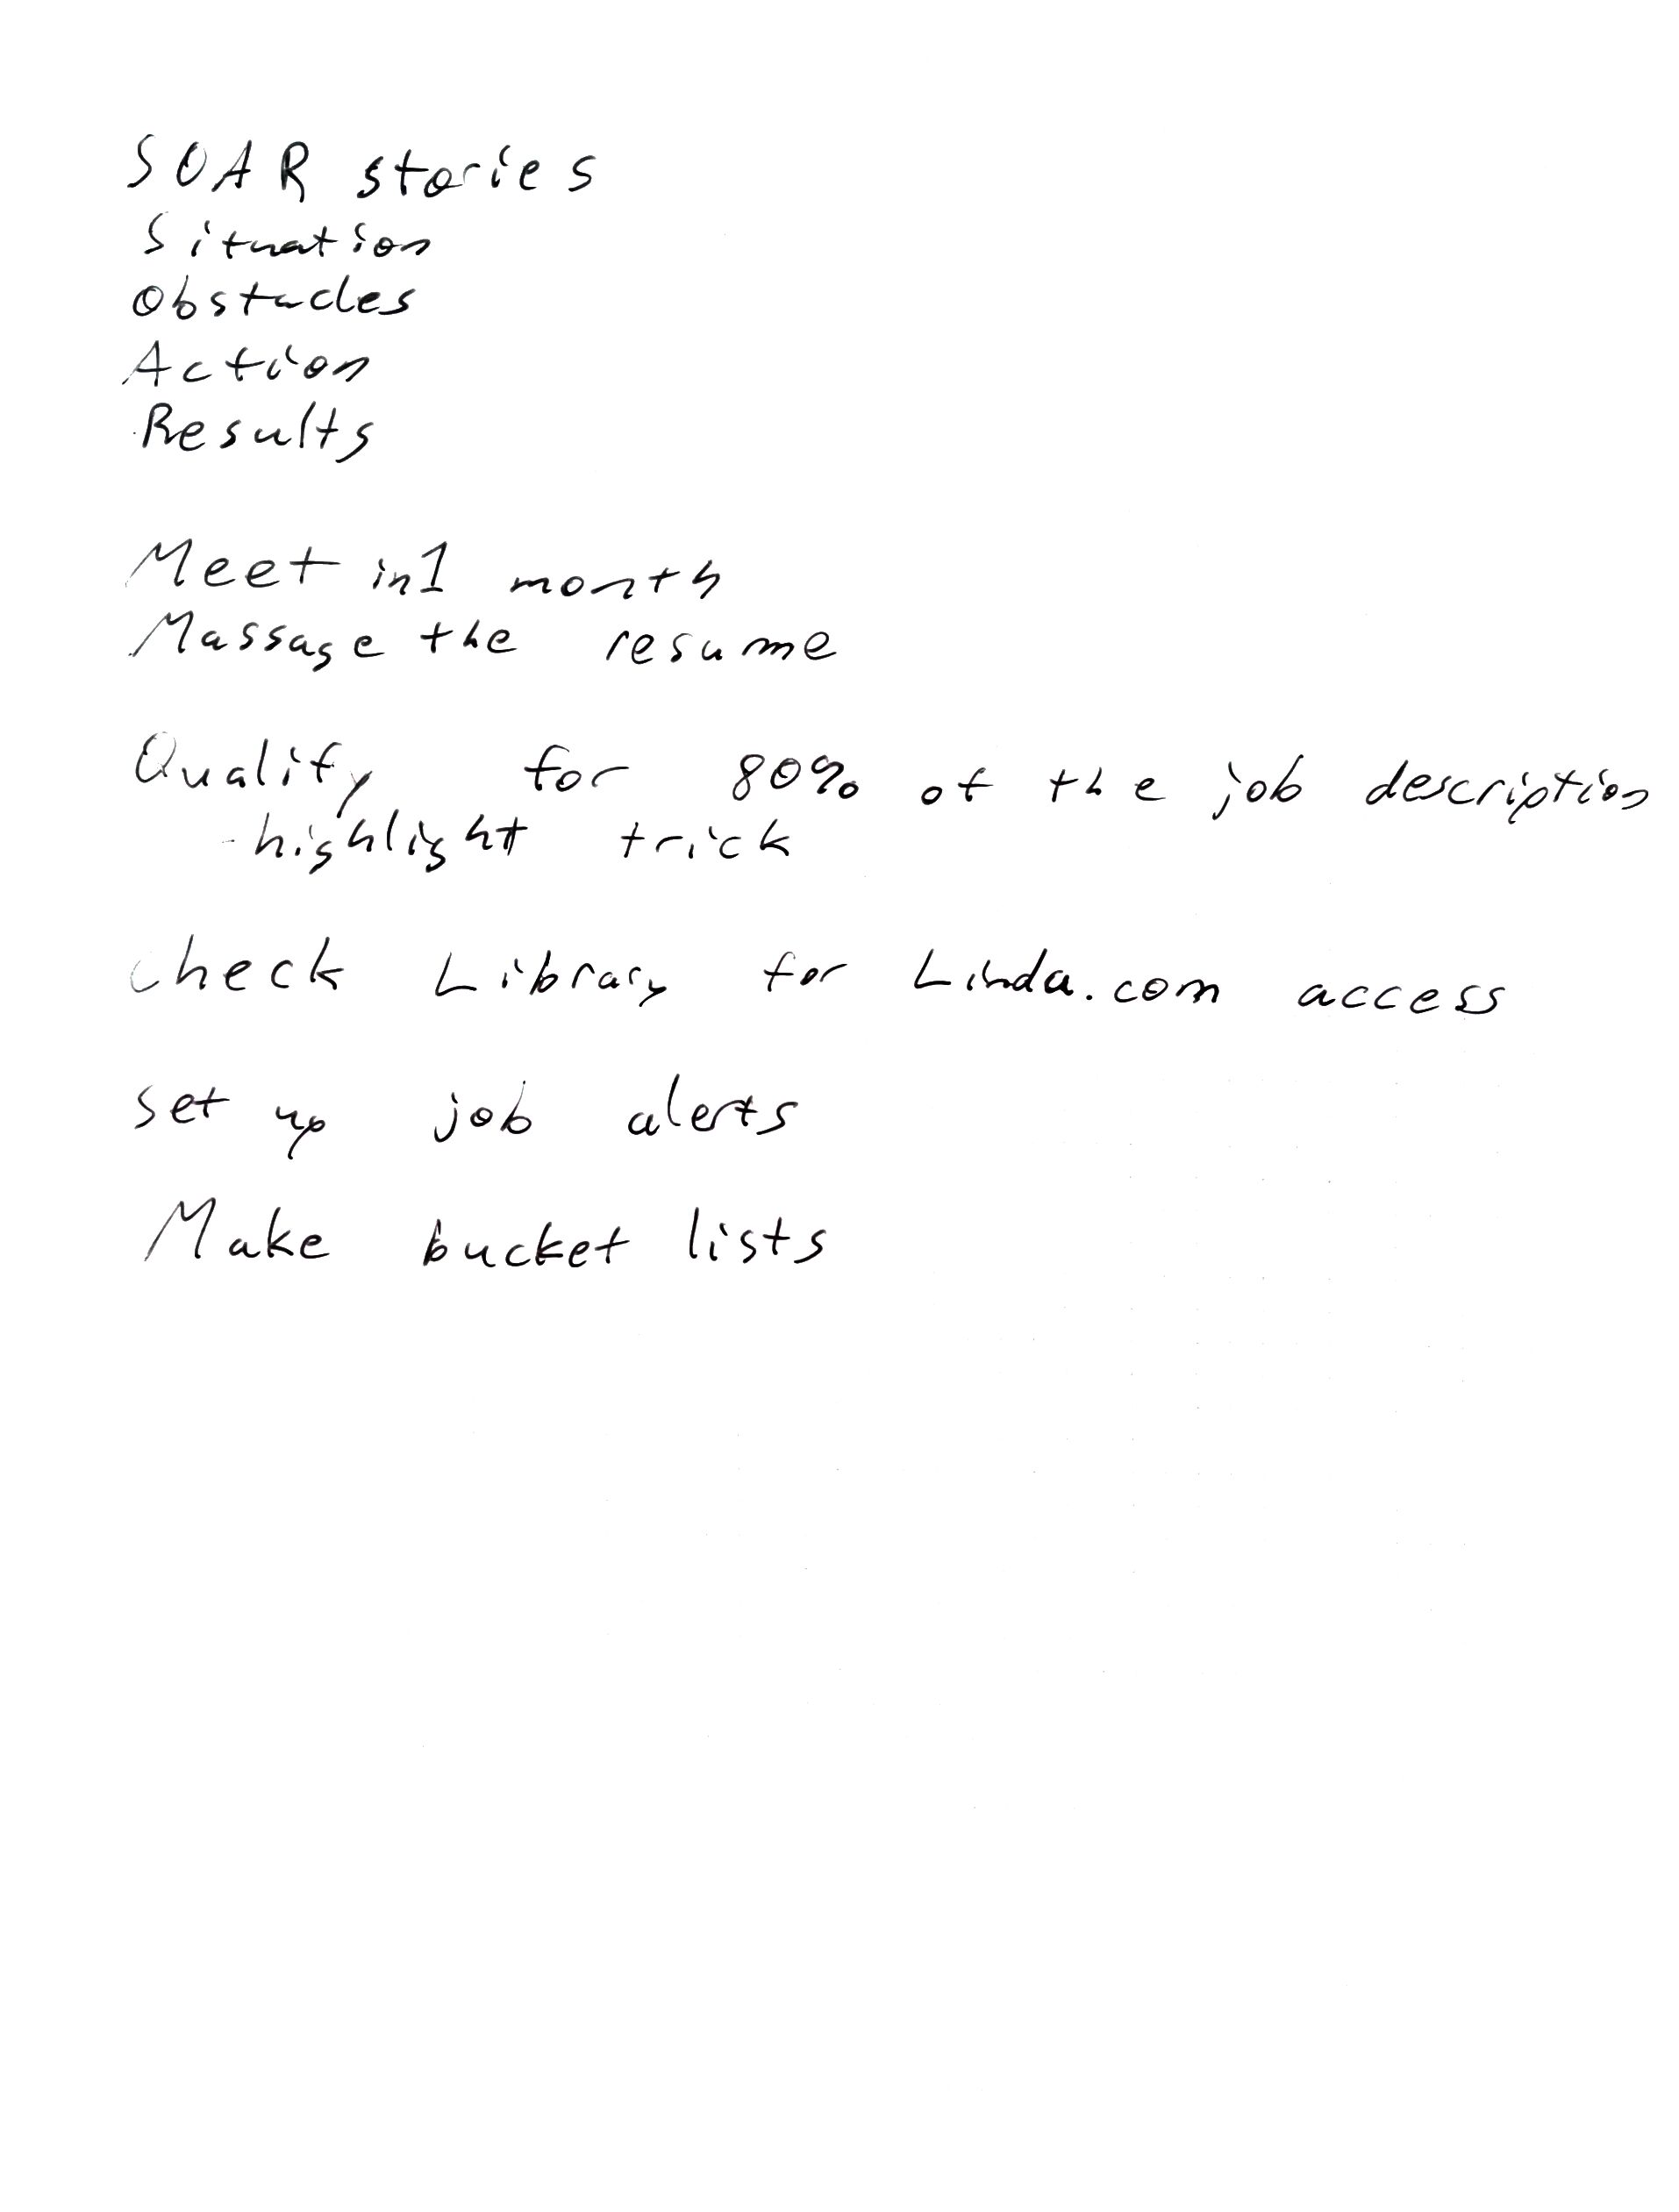 SOAR stories
Situation
Obstacles
Action
Results
Meet in 1 month
Massage the resume
Qualify for 80% of the job description
-highlight trick
check Library for Linda.com access
set up job alerts
Make bucket lists